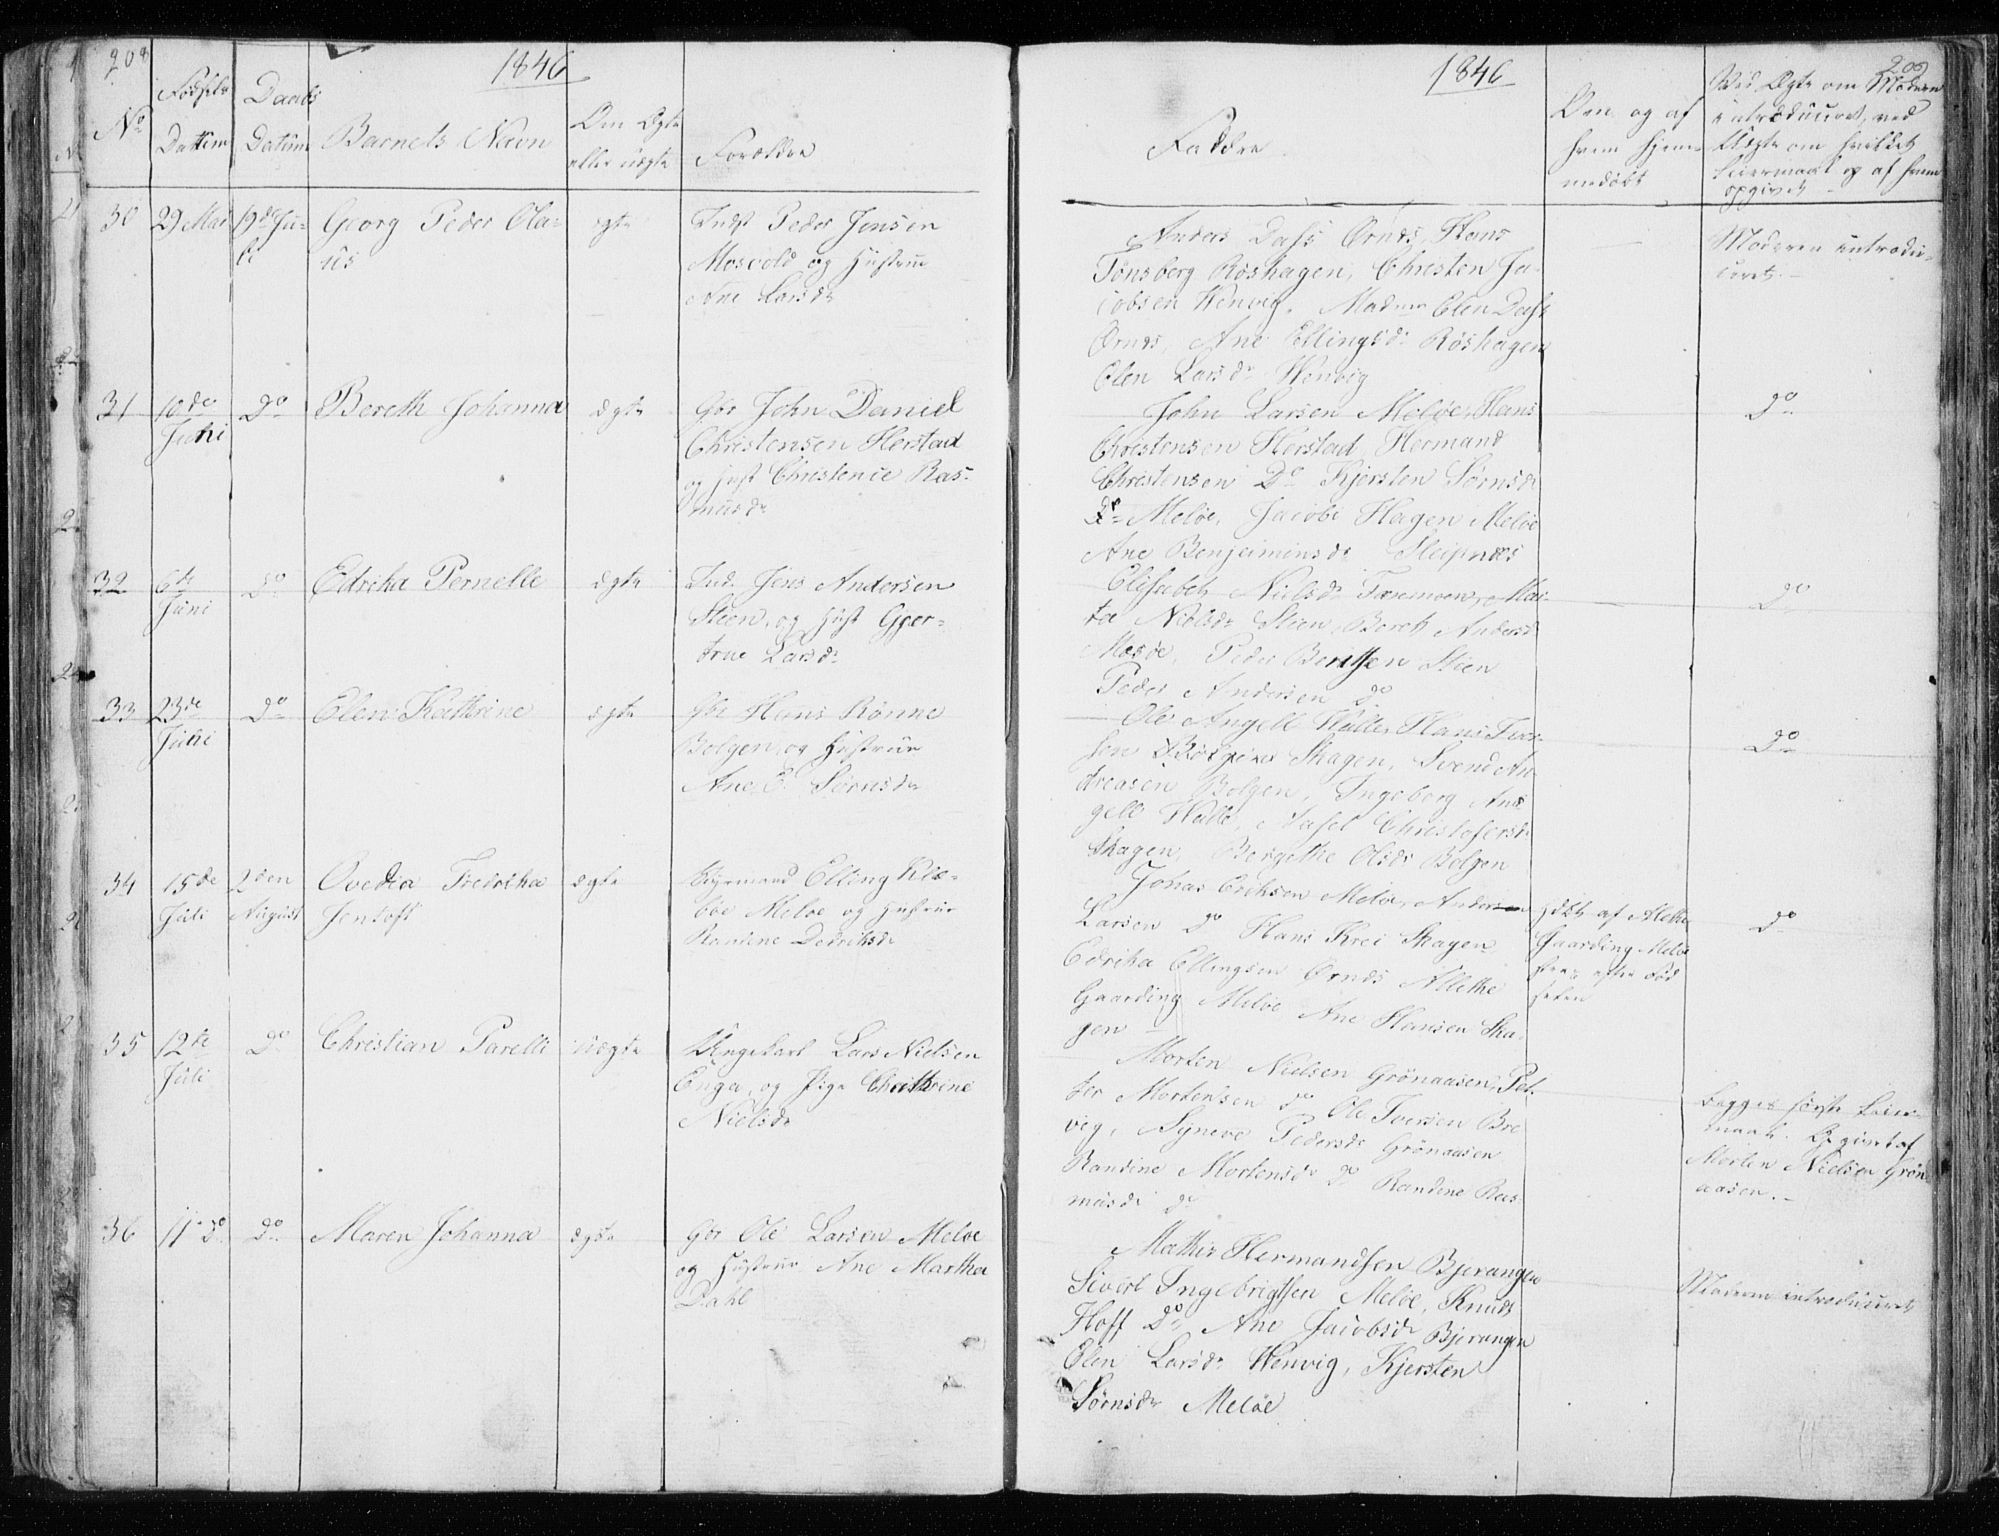 208
1846
No
Fødsels
Dattum
Daabs
Datum
Barnets Navn
Om Ægte
eller uægte
Forældre
30
29 Mai
19de Ju-
li
Georg Peder Ola-
us
ægte
Inds Peder Jensen
Mosvold og Hustrue
Ane Larsdr
31
10de
Juni
Do
Bereth Johanna
ægte
Gbr John Daniel
Christensen Herstad
og Hust Christence Ras-
musdr
32
6te
Juni
Do
Edrika Pernelle
ægte
Ind. Jens Andersen
Steen, og Hust Gjer-
true Larsdr
33
23de
Juni
Do
Elen Kathrine
ægte
Gbr Hans Rønne
Bolgen, og Hustrue
Ane E. Sørnsdr
34
15de
Juli
2den
August
Ovedia Fredrika
Jentoft
ægte
Styrmand Elling Klæ-
bøe Meløe og Hustrue
Randine Dedriksdr
35
12te
Juli
Do
Christian Parelli
Uægte
Ungekarl Lars Nielsen
Enga, og Pige Chrithrine
Nielsdr
36
11 do
Do
Maren Johanna
ægte
Gbr Ole Larsen Meløe
og Hustrue Ane Martha
Dahl
209
1846
Faddre
Om og af
hvem hjem-
medøbt
Ved Ægte om Moderen
introduceret, ved
Uægte om hvilket
Leiermaal og af hvem
opgivet
Anders Dass Ørnes, Hans
Tønsberg Røshagen, Christen Ja-
cobsen Wenvig, Madme Elen Dass
Ørnes, Ane Ellingsdr Røshagen
Elen Larsdr Wenvig
Moderen introdu-
ceret.
John Larsen Meløe, Hans
Christensen Herstad Hermand
Christensen Do Kjersten Sørnsdr
Meløe, Jacobe Hagen Meløe
Ane Benjaminsdr Sleipnæs
Do
Elisabet Nielsdr
Nielsdr Steen, Boreth Andersd
Mæsøe, Peder Berntsen Steen
Peder Andersen do
Do
Ole Angell Halle, Hans Iver-
sen Skagen, Svend An-
dreasen Bolgen, Ingeborg An-
gell Halle, Christofersdr
Skagen, Bergithe Olsdr Bolgen
Do
Jonas Eriksen Meløe, Anders
Larsen do Hans Krei Skagen
Edrika Ellingsen Ørnes Allethe
Gaarding Meløe Ane Hansen Ska-
gen
Hdbt af Alethe
Gaarding Meløe
strax efter Fød
selen
Do
Morten Nielsen Grønaasen, Pet-
ter Mortensen do Ole Iversen Bre
vig, Syneve Pedersdr Grønaasen
Randine Mortensdr do Randine Ras-
musdr do
Begges første Leier-
maal. Opgivet af
Morten Nielsen Grøn-
aasen.
Mathis Hermandsen Bjerangen
Sivert Ingebrigtsen Meløe, Knud
Hoff Do Ane Jacobsdr Bjerangen
Elen Larsdr Wenvig, Kjersten
Sørnsdr Meløe
Moderen introduceret